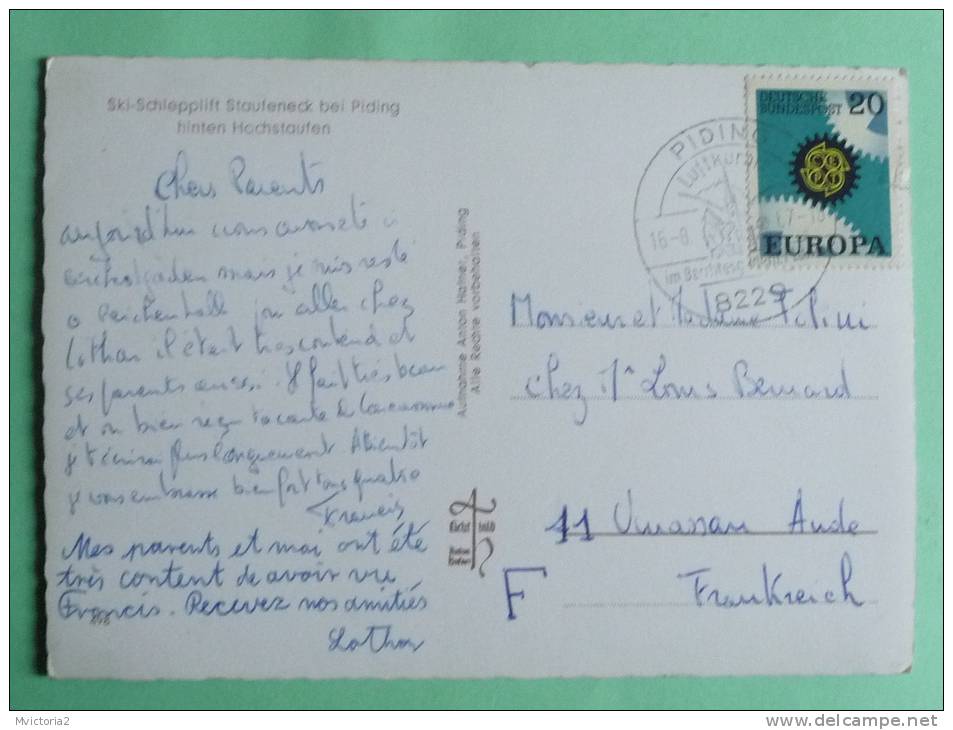 Ski-Schlepplift Staufeneck bei Piding
hinten Hochstaufen
Chers Parents
aujourd'hui nous avons été à
mais je suis resté
a Reichenhall pour aller chez
Lothar il était tres contend et
ses parents aussi. Il fait très beau
et on bien reçu ta carte de Carcassonne
je t'écrirai plus longuement. A bientôt
je vous embrasse bien fort tous quatre
Francis
Mes parents et moi ont été
très content de avoir vu
Francis. Recevez nos amitiés
Lothar
898
Aufnahme Anton Hafner, Piding
Alle Rechte vorbehalten
DEUTSCHE
BUNDESPOST 20
EUROPA
PIDING
Luftkurort
16.-8.
17-18
im Berchtesg.
8229
Monsieur et Madame
chez Mr Louis Bernard
11 Vinassan Aude
F Frankreich
Mvictoria2
delcampe.net